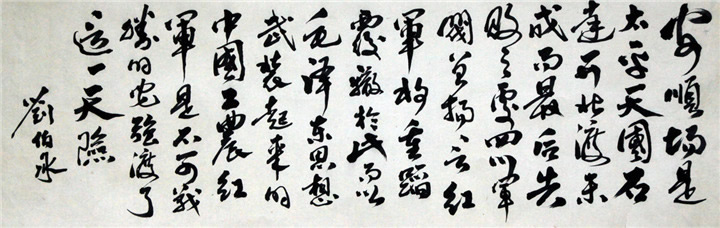 安順場是
太平天國石
達开北渡未
成而最后失
敗之處四川軍
閥曾揚言紅
軍将重蹈
覆轍於此而以
毛泽东思想
武裝起来的
中國工農紅
軍是不可战
勝的它強渡了
這一天險
劉伯承